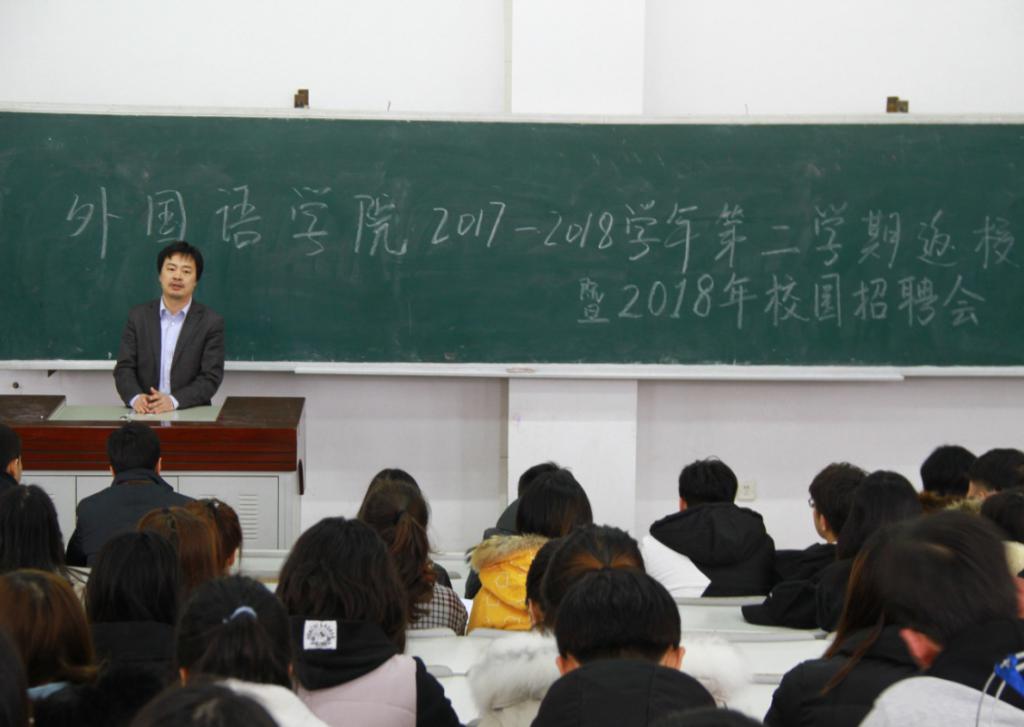 外国语学院2017-2018学年第二学期返校
暨2018年校园招聘会